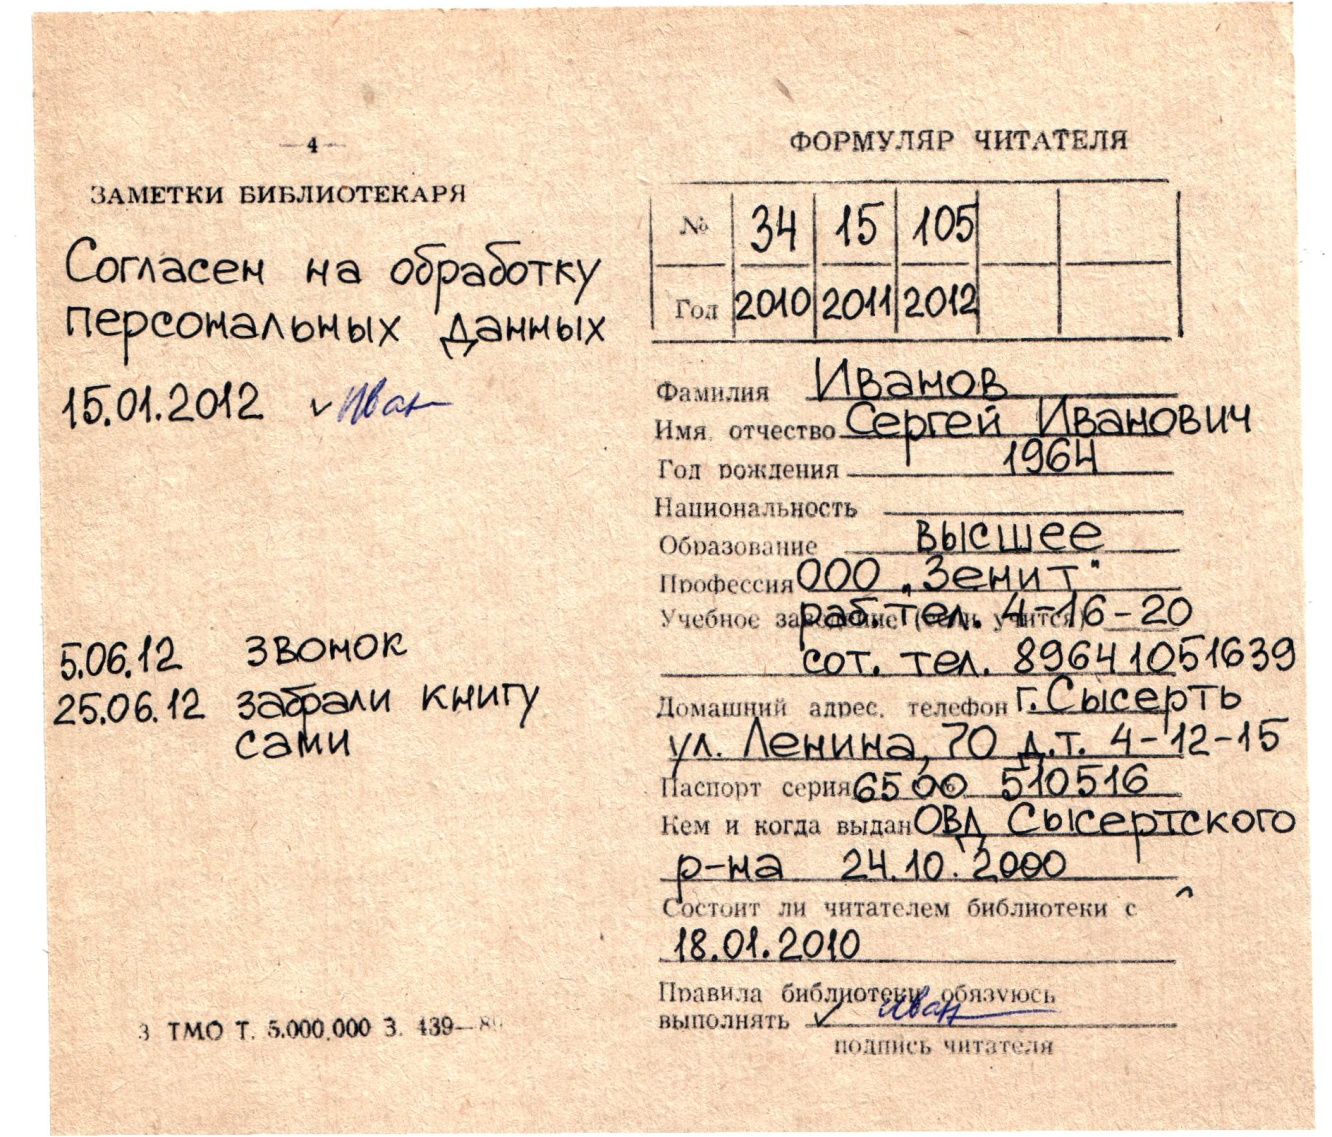 — 4 —
ЗАМЕТКИ БИБЛИОТЕКАРЯ
Согласен на обработку
персональных данных
15.01.2012 ✓ Иван
5.06.12 звонок
25.06.12 забрали книгу
сами
3 ТМО Т. 5.000.000 З. 439—
ФОРМУЛЯР ЧИТАТЕЛЯ
№ 34 15 105
Год 2010 2011 2012
Фамилия Иванов
Имя, отчество Сергей Иванович
Год рождения 1964
Национальность
Образование высшее
Профессия ООО „Зенит"
Учебное заведение (если учится) раб.тел. 4-16-20
сот. тел. 89641051639
Домашний адрес, телефон г.Сысерть
ул. Ленина, 70 д.т. 4-12-15
Паспорт серия 6500 510516
Кем и когда выдан ОВД Сысертского
р-на 24.10.2000
Состоит ли читателем библиотеки с
18.01.2010
Правила библиотеки обязуюсь
выполнять ✓ Иван
подпись читателя